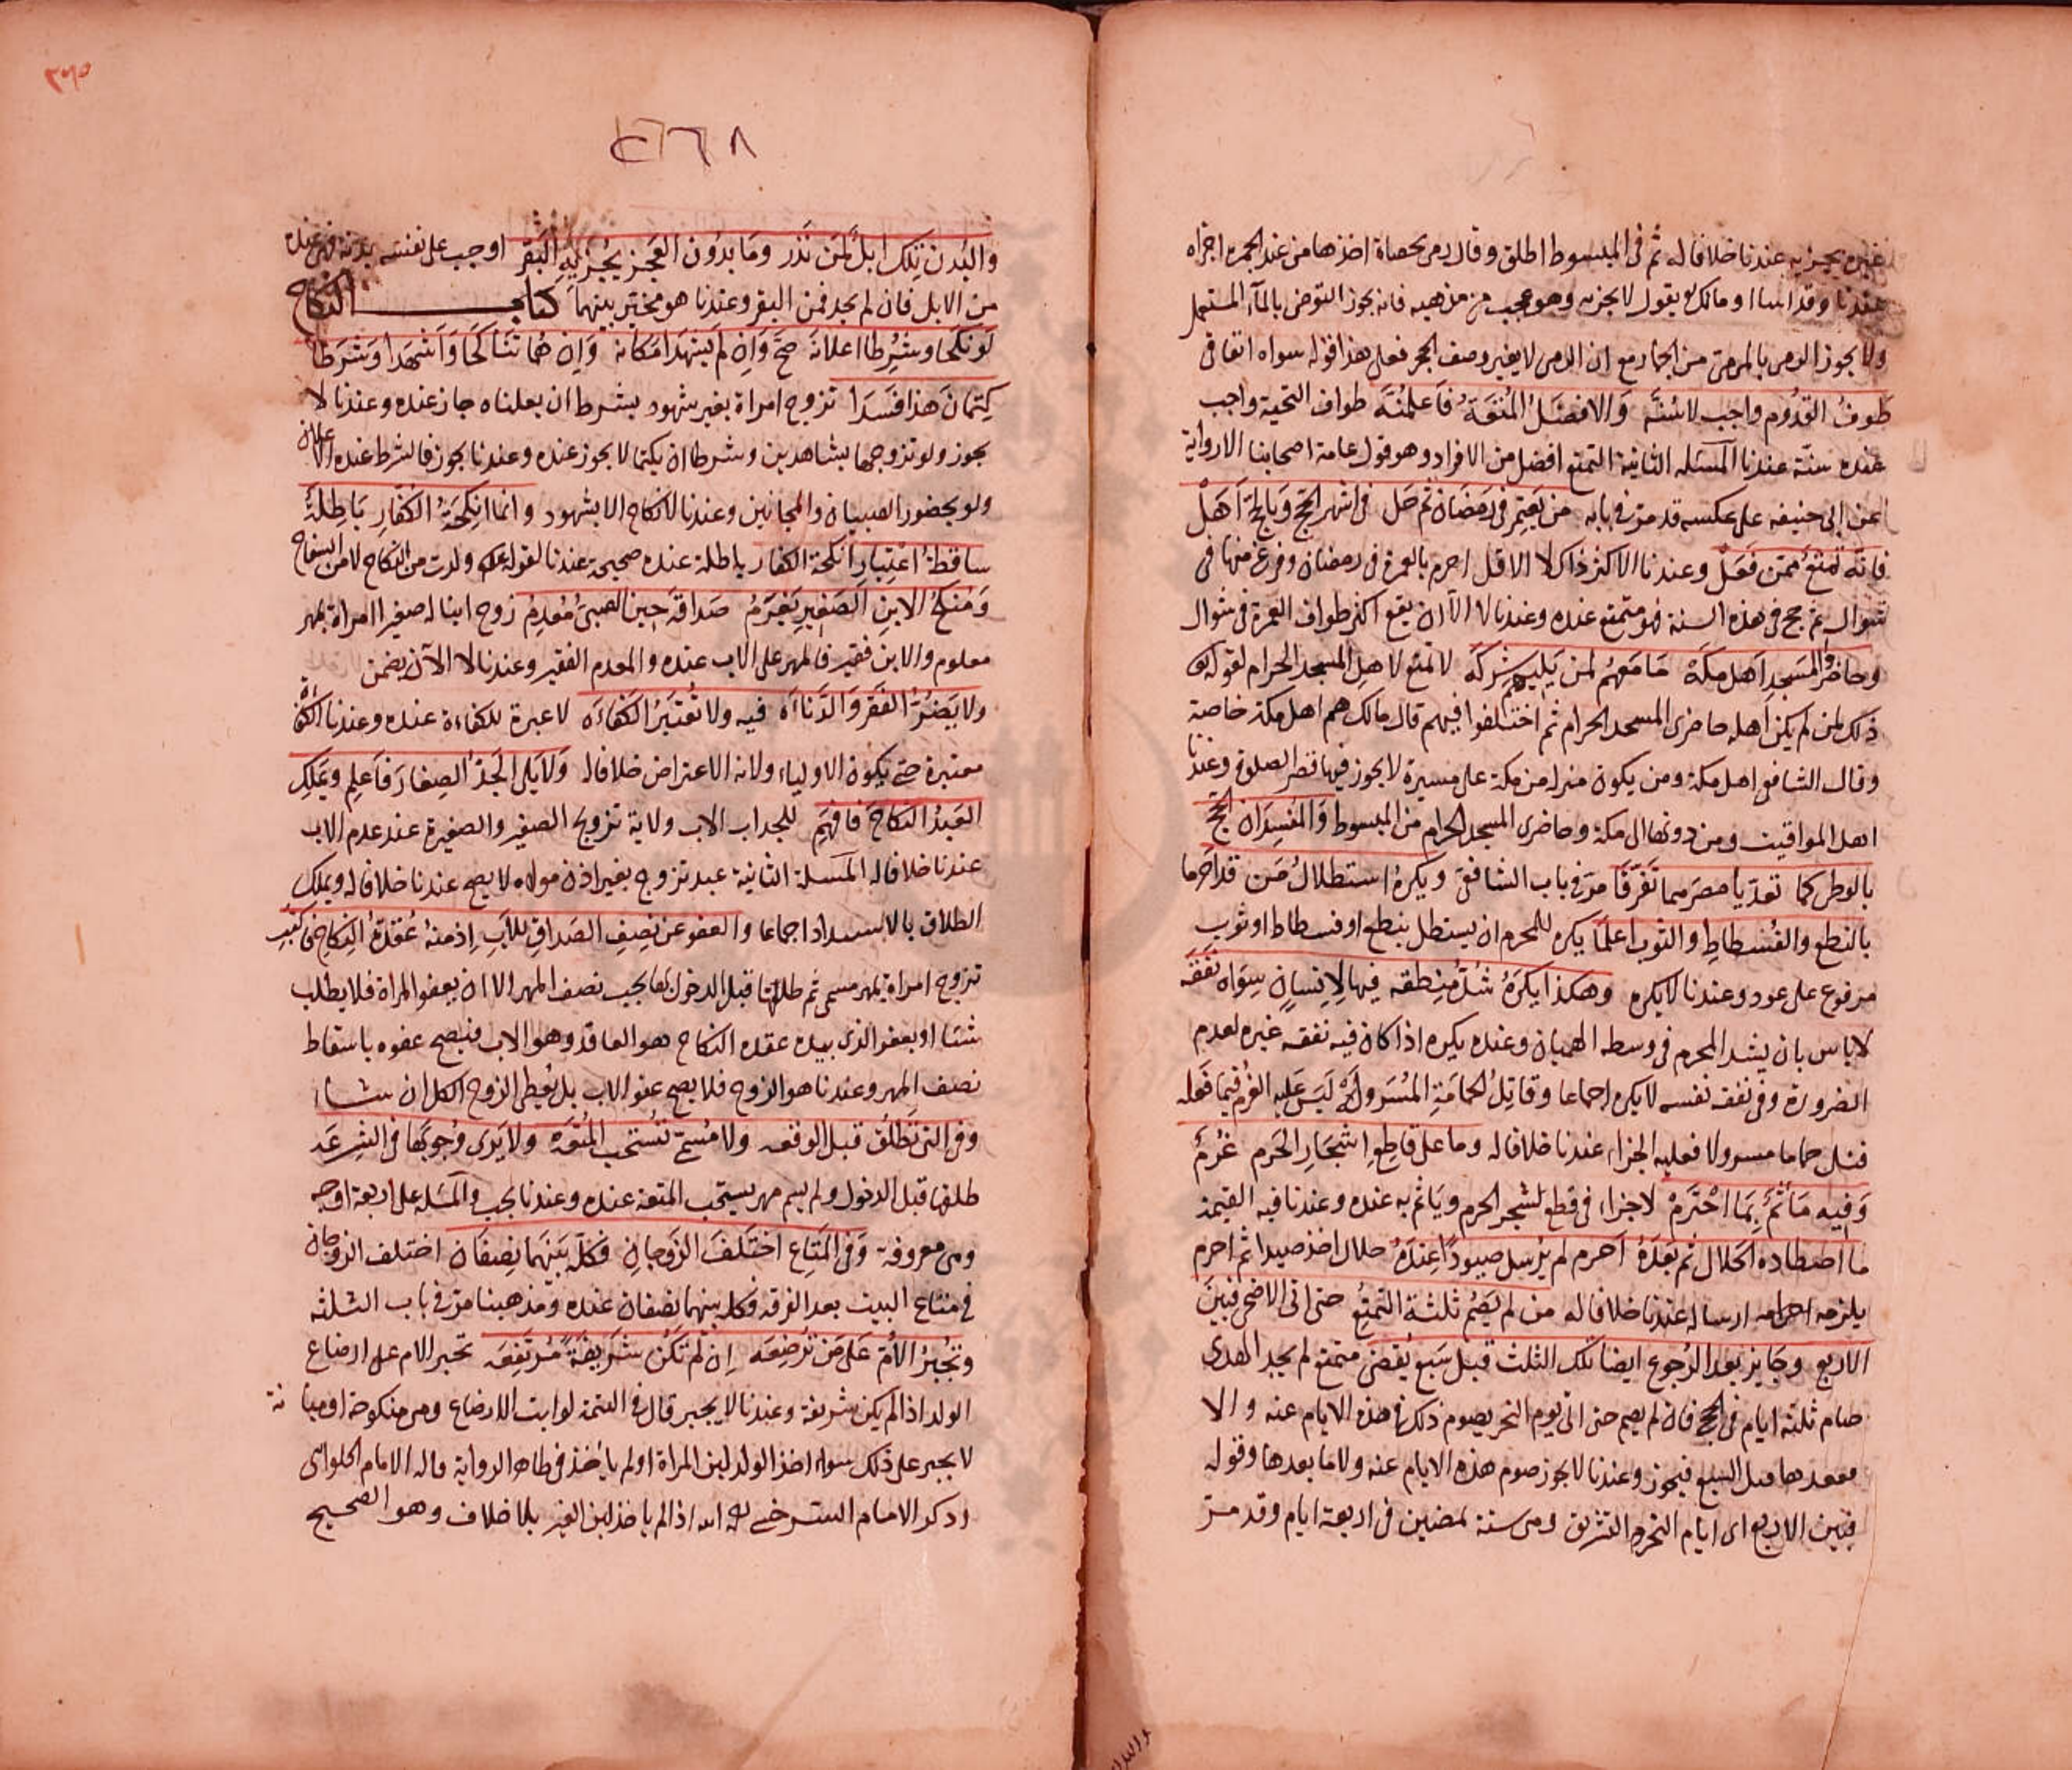 غيره يجزيه عندنا خلافا له ثم في المبسوط اطلق وقال رمى بحصاة اخذها من عند الجمرة اجزاه
عندنا وقد اسا ومالك يقول لا يجزيه وهو عجيب من مذهبه فانه يجوز التوضى بالماء المستعمل
ولا يجوز الرمى بالمرمى من الجمار مع ان الرمى لا يغير وصف الحجر فعلى هذا قوله سواه اتفاقي
طوف القدوم واجب لا سنه والافضل المتعة فاعلمنه طواف التحية واجب
عنده سنة عندنا المسئله الثانية التمتع افضل من الافراد وهو قول عامة اصحابنا الا رواية
عن ابى حنيفه على عكسه قد مر في بابه من يعتمر في رمضان ثم حل في اشهر الحج وبالحج اهل
فانه تمتع ممن فعل وعندنا الاكثر ذاك لا الاقل احرم بالعمرة في رمضان وفرغ منها في
شوال ثم حج في هذه السنة فهو متمتع عنده وعندنا لا الا ان يقع اكثر طواف العمرة في شوال
وحاضرو المسجد اهل مكة ما معهم لمن يليهم شركه لا تمتع لاهل المسجد الحرام لقوله تعا
ذلك لمن لم يكن اهله حاضرى المسجد الحرام ثم اختلفوا فيهم قال مالك هم اهل مكة خاصة
وقال الشافعي اهل مكة ومن يكون منزله من مكة على مسيرة لا يجوز فيها قصر الصلوة وعندنا
اهل المواقيت ومن دونها الى مكة وحاضرى المسجد الحرام من المبسوط والمفسدان الحج
بالوطى كما تعديا مصرهما تفرقا مر في باب الشافعي ويكره استظلال من قد احرما
بالنطع والفسطاط والثوب اعلما يكره للمحرم ان يستظل بنطع او فسطاط او ثوب
مرفوع على عود وعندنا لا يكره وهكذا يكره شد منطقه فيها لانسان سواه نفقه
لا باس بان يشد المحرم في وسطه الهميان وعنده يكره اذا كان فيه نفقه غيره لعدم
الضرورة وفي نفقه نفسه لا يكره اجماعا وقاتل الحمامة المسرولة ليس عليه الغرم فيما فعله
قتل حماما مسرولا فعليه الجزاء عندنا خلافا له وما على قاطع اشجار الحرم غرم
وفيه مأثم بما اخترم لا جزاء في قطع شجر الحرم وياثم به عنده وعندنا فيه القيمة
ما اصطاده الحلال ثم بعده احرم لم يرسل صيودا عنده حلال اخذ صيدا ثم احرم
يلزمه احرامه ارساله عندنا خلافا له من لم يصم ثلثة التمتع حتى اتى الاضحى فبين
الاربع وجايز بعد الرجوع ايضا تلك الثلث قبل سبع يقضى متمتع لم يجد الهدى
صام ثلثة ايام في الحج فان لم يصم حتى اتى يوم النحر يصوم ذلك في هذه الايام عنه والا
فبعدها قبل السبع فيجوز وعندنا لا يجوز صوم هذه الايام عنه ولا ما بعدها وقوله
فبين الاربع اى ايام النحر والتشريق ومن سنة لمضين في اربعة ايام وقد مر
٣٦٥
٢٦٦٨
والبدن تلك ابل لمن نذر وما بدون العجز يجزيه البقر اوجب على نفسه بدنة فهى عنده
من الابل فان لم يجد فمن البقر وعندنا هو مخير بينهما كتاب النكاح
لو نكحا وشرطا اعلانه صح وان لم يشهدا مكانه وان هما تناكحا واشهدا وشرطا
كتمان هذا فسدا تزوج امراة بغير شهود بشرط ان يعلناه جاز عنده وعندنا لا
يجوز ولو تزوجها بشاهدين وشرطا ان يكتما لا يجوز عنده وعندنا يجوز فالشرط عنده الاعلان
ولو بحضور الصبيان والمجانين وعندنا لا نكاح الا بشهود وانما انكحة الكفار باطلة
ساقطة اعتبار انكحة الكفار باطلة عنده صحيحة عندنا لقوله عم ولدت من النكاح لا من السفاح
ومنكح الابن الصغير يغرم صداقه حين الصبى معدم زوج ابنا له صغيرا امراة بمهر
معلوم والابن فقير فالمهر على الاب عنده والمعدم الفقير وعندنا لا الا ان يضمن
ولا يضر الفقر والدناءه فيه ولا تعتبر الكفاءه لا عبرة للكفاءة عنده وعندنا الكفاءة
معتبرة حتى يكون للاولياء ولاية الاعتراض خلافا له ولا يلى الجد الصغار فاعلم ويملك
العبد النكاح فافهم للجد اب الاب ولاية تزويج الصغير والصغيرة عند عدم الاب
عندنا خلافا له المسئلة الثانية عبد تزوج بغير اذن مولاه لا يصح عندنا خلافا له ويملك
الطلاق بالاستبداد اجماعا والعفو عن نصف الصداق للاب اذ منه عقدة النكاح فاكتب
تزوج امراة بمهر مسمى ثم طلقها قبل الدخول بها يجب نصف المهر الا ان يعفو المراة فلا يطلب
شئا او يعفو الذى بيده عقدة النكاح هو العاقد وهو الاب فيصح عفوه باسقاط
نصف المهر وعندنا هو الزوج فلا يصح عفو الاب بل يعطى الزوج الكل ان شاء
وفي التى تطلق قبل الوقعه ولا مسمى تستحب المتعه ولا يرى وجوبها في الشرعه
طلقها قبل الدخول ولم يسم مهر يستحب المتعة عنده وعندنا يجب والمسئله على اربعة اوجه
وهى معروفة وفي المتاع اختلف الزوجان فكله بينهما نصفان اختلف الزوجان
في متاع البيت بعد الفرقه فكله بينهما نصفان عنده ومذهبنا مر في باب الثلثه
وتجبر الام على من ترضعه ان لم تكن شريفة مرتفعه تجبر الام على ارضاع
الولد اذا لم يكن شريفة وعندنا لا يجبر قال في التتمة لو ابت الارضاع وهى منكوحة او مبانة
لا يجبر على ذلك سواء اخذ الولد لبن المراة او لم ياخذ في ظاهر الرواية قاله الامام الحلوانى
وذكر الامام السرخسى انه اذا لم ياخذ لبن الغير بلا خلاف وهو الصحيح